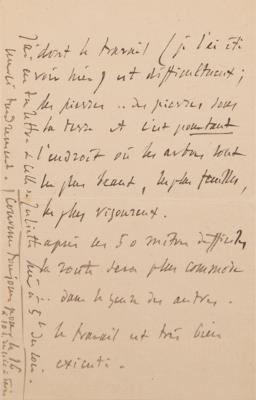 dont le travail (je l'ai été
voir hier) est difficultueux ;
les pierres .. des pierres sous
la terre et c'est pourtant
l'endroit où les arbres sont
les plus beaux, les plus feuillus,
les plus vigoureux.
après les 50 mètres difficiles
la route sera plus commode
dans le genre des autres.
le travail est très bien
exécuté.
J'ai eu ta lettre celle
hier à 5h du soir.
tendrement.
Convenu toujours pour le